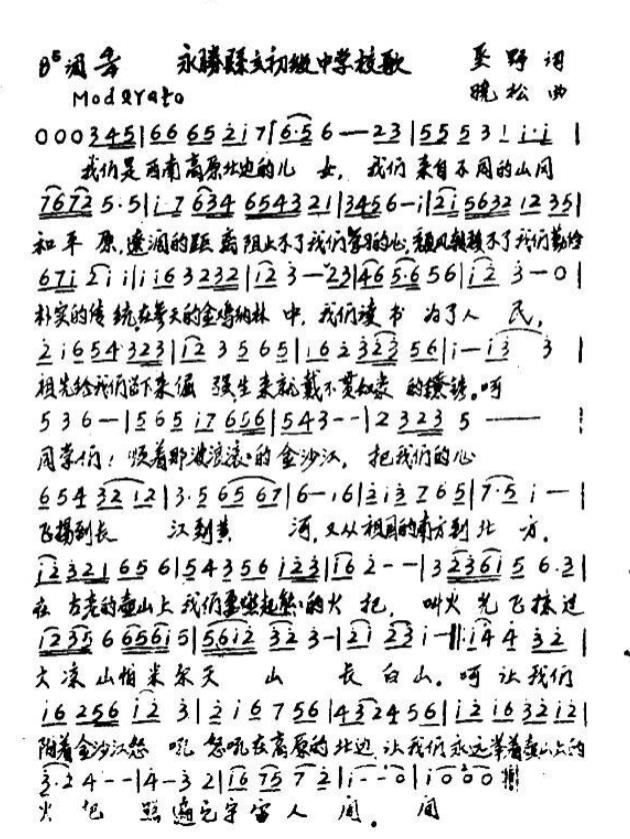 B♭调 4/4 永勝縣立初级中学校歌 野 词
Moderato 晓松 曲
0 0 0 3 4 5 | 6 6 6 5 2 i 7 | 6·5 6 — 2 3 | 5 5 5 3 1 i·i |
我们是西南高原北边的儿 女, 我们 来自不同的山间
7 6 7 2 5·5 | i·7 6 3 4 6 5 4 3 2 1 | 3 4 5 6 – i | 2 i 5 6 3 2 1 2 3 5 |
和平 原,遼阔的距 离阻止不了我们学习的心, 不了我们勤俭
6 7 i 2 i i | i i 6 3 2 3 2 | i 2 3 – 2 3 | 4 6 5·6 5 6 | i 2 3 – 0 |
朴实的传 统,在参天的金鸡纳林 中, 我们读 书 为了人 民,
2 i 6 5 4 3 2 3 | i 2 3 5 6 5 | i 6 2 3 2 3 5 6 | i – i 3 3 |
祖先给我们留下来倔 强生来就戴不 的镣铐。呵
5 3 6 – | 5 6 5 i 7 6 5 6 | 5 4 3 - - | 2 3 2 3 5 —
同学们! 顺着那波浪滚滚的金沙江, 把我们的心
6 5 4 3 2 1 2 | 3·5 6 5 6 7 | 6 – i 6 | 2 i 3 7 6 5 | 7·5 i — |
飞揚到长 江到黄 河,又从祖国的南方到北 方。
i 2 3 2 1 6 5 6 | 5 4 3 5 6 i 2 3 | i 6 2 - - | 3 2 3 6 i 5 6·3 |
在 古老的壶山上 我们要燃起熊熊的火 把, 叫火 光飞掠过
i 2 3 5 6 6 5 6 i 5 | 5 6 i 2 3 2 3 – | 2 i 2 3 i – | i 4 4 3 2 |
大凉山帕米尔天 山 长 白山。呵 让我们
i 6 2 5 6 i 2 3 | 2 i 6 7 5 6 | 4 3 2 4 5 6 | i 2 i 6 3 2 i 2 |
陪着金沙江怒 吼 怒吼在高原的北边 让我们永远举着壶山上的
3·2 4 - - | 4 – 3 2 | i 6 7 5 7 2 | i - - 0 | i 0 0 0 |
火 把 照遍元宇宙人 间。 间